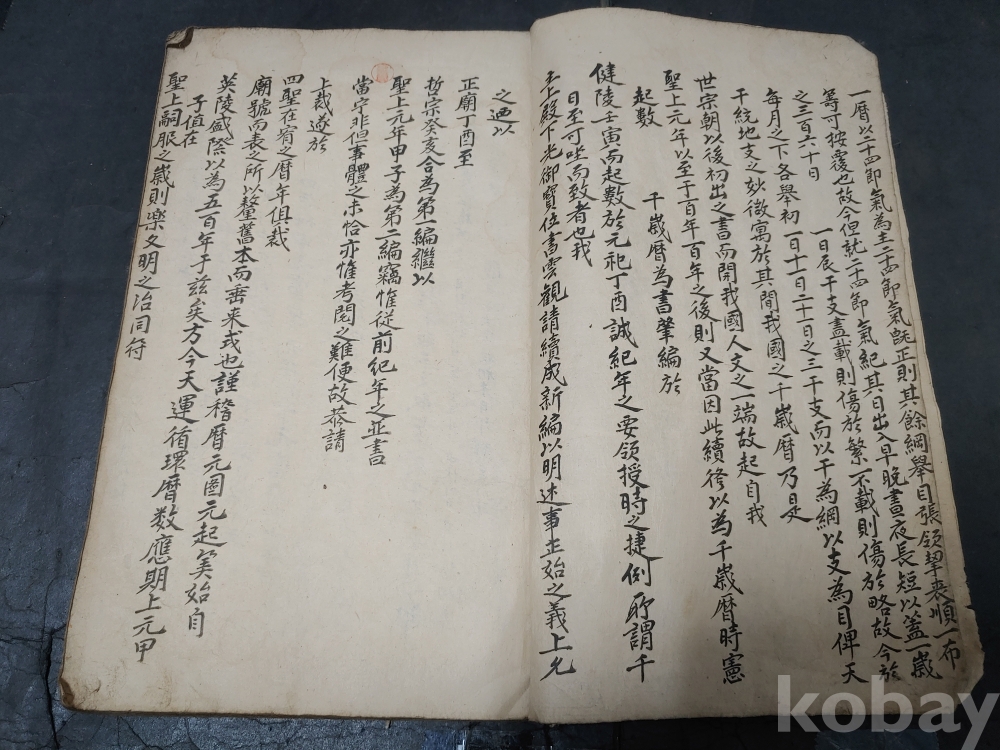 一曆以二十四節氣為主二十四節氣旣正則其餘綱舉目張領挈裘順一布
等可按覆也故今但就二十四節氣紀其日出入早晚晝夜長短以蓋一歲
之三百六十日
一日辰干支盡載則傷於繁不載則傷於略故今於
每月之下各舉初一日十一日二十一日之三干支而以干為綱以支為目俾天
干統地支之妙微寓於其間我國之千歲曆乃是
世宗朝以後初出之書而開我國人文之一端故起自我
聖上元年以至于百年百年之後則又當因此續修以為千歲曆時憲
起數
千歲曆為書肇編於
健陵壬寅而起數於元祀丁酉誠紀年之要領授時之捷例所謂千
日至可坐而致者也我
主上殿下光御寶位書雲觀請續成新編以明述事正始之義上允
之迺以
正廟丁酉至
哲宗癸亥合為第一編繼以
聖上元年甲子為第二編竊惟從前紀年之並書
當宁非但事體之未恰亦惟考閱之難便故恭請
上裁遂於
四聖在宥之曆年俱裁
廟號而表之所以釐舊本而垂来戎也謹稽曆元圖元起筭始自
英陵盛際以為五百年于玆矣方今天運循環曆數應期上元甲
子值在
聖上嗣服之歲則樂文明之治同符
kobay